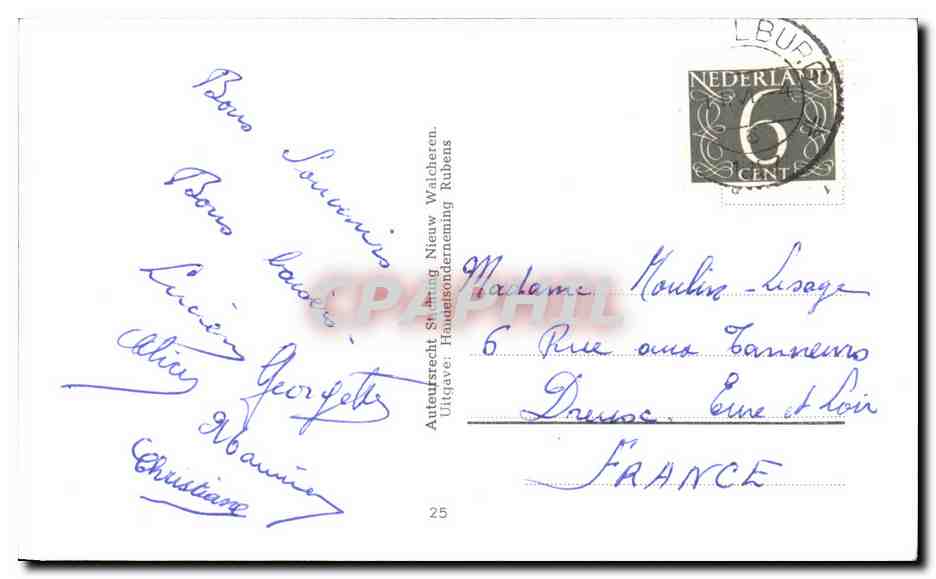 Bons Souvenirs
Bons baisers
Lucien
Alice
Georgette
Maurice
Christiane
Auteursrecht Stichting Nieuw Walcheren.
Uitgave: Handelsonderneming Rubens
25
LBURG
NEDERLAND
6
CENT
Madame Moulin-Lesage
6 Rue aux Tanneurs
Dreux. Eure et Loir
FRANCE
CPAPHIL